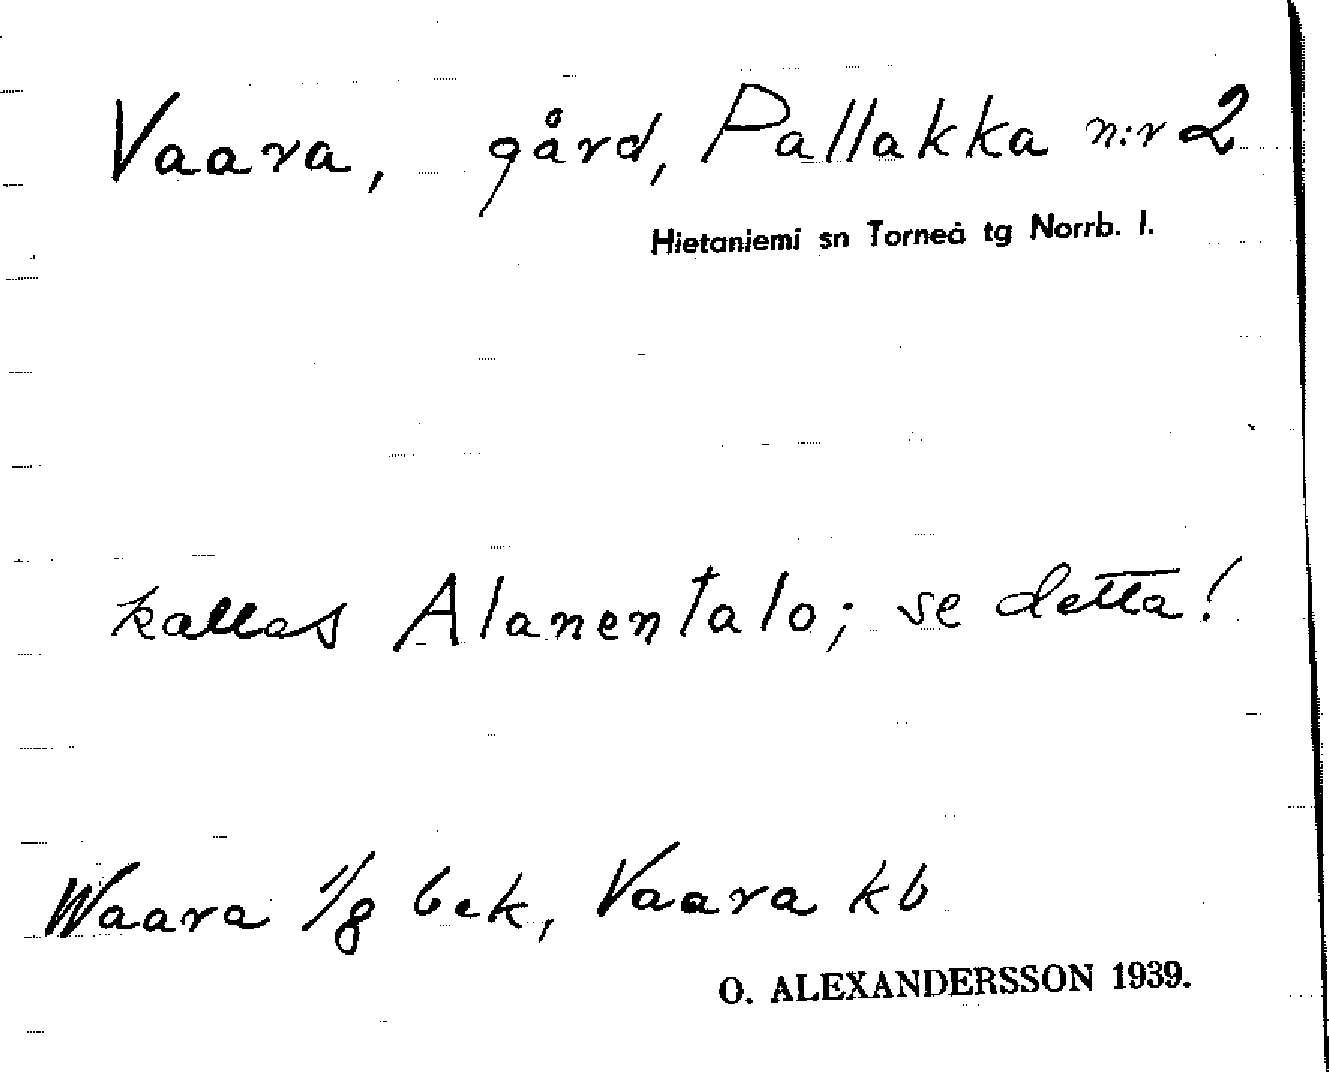 Vaara, gård, Pallakka n:r 2
Hietaniemi sn Torneå tg Norrb. l.
kallas Alanentalo; se detta!
Waara 1/8 bek, Vaara kb
O. ALEXANDERSSON 1939.